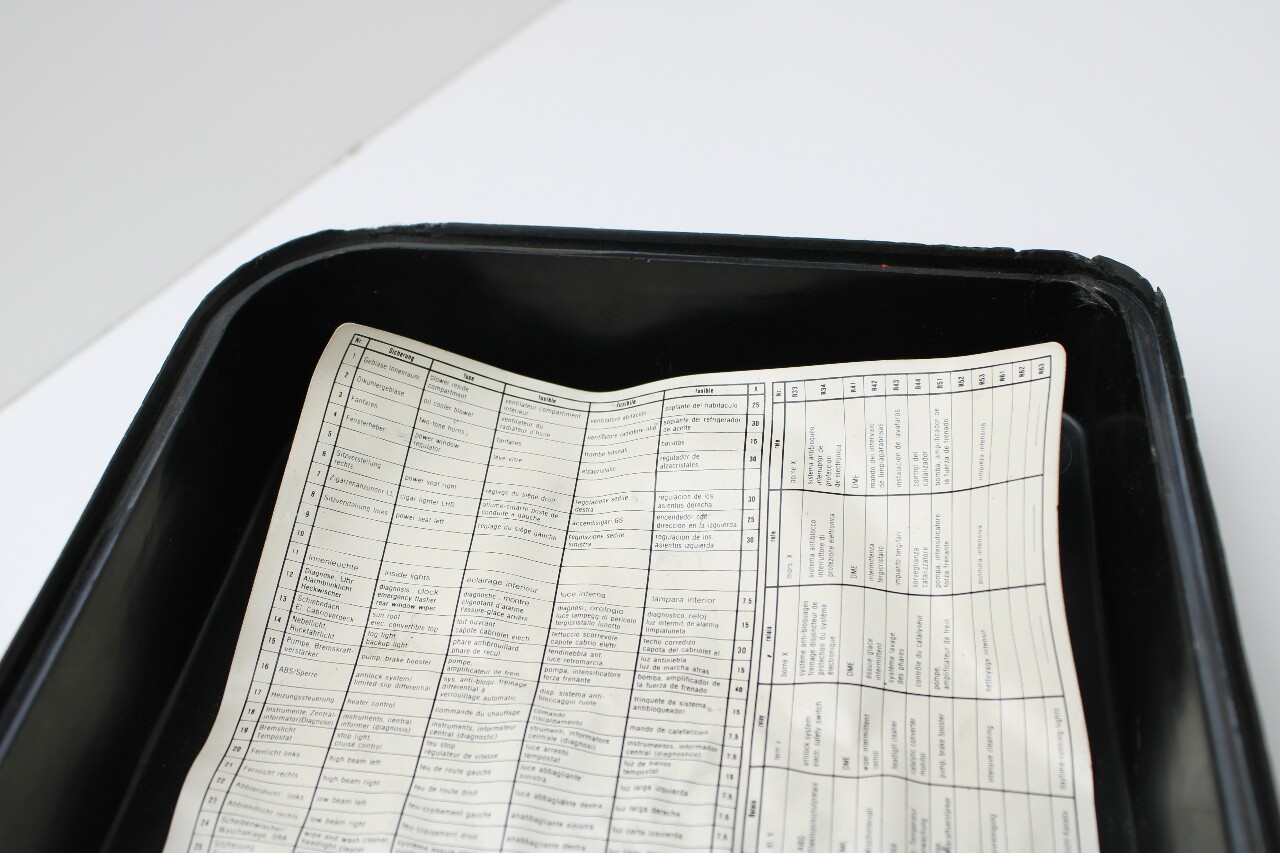 Nr. Sicherung fuse fusible fusibile fusible A
1 Gebläse Innenraum blower inside compartment ventilateur compartiment interieur ventilatore abitacolo soplante del habitaculo 25
2 Ölkühlergebläse oil cooler blower ventilateur du radiateur d'huile ventilatore radiatore olio soplante del refrigerador de aceite 30
3 Fanfaren two-tone horns fanfares trombe bitonali bocinas 15
4 Fensterheber power window regulator lève-vitre alzacristallo regulador de alzacristales 30
5
6 Sitzverstellung rechts power seat right réglage du siège droit regolazione sedile destra regulacion de los asientos derecha 30
7 Zigarrenanzünder LL cigar lighter LHD allume-cigarre poste de conduite à gauche accendisigari GS encendedor con direccion en la izquierda 25
8 Sitzverstellung links power seat left réglage du siège gauche regolazione sedile sinistra regulacion de los asientos izquierda 30
9
10
11 Innenleuchte inside lights eclairage interieur luce interna lampara interior 7.5
12 Diagnose, Uhr Alarmblinklicht Heckwischer diagnosis, clock emergency flasher rear window wiper diagnostic, montre clignotant d'alarme l'essuie-glace arrière diagnosi, orologio luce lampegg. di pericolo tergicristallo lunotto diagnostico, reloj luz intermit. de alarma limpialuneta 15
13 Schiebedach El. Caprioverdeck sun roof elec. convertible top toit ouvrant capote cabriolet electr. tettuccio scorrevole capote cabrio elettr. techo corredizo capota del cabriolet el. 30
14 Nebellicht Rückfahrlicht fog light backup light phare antibrouillard phare de recul fendinebbia ant. luce retromarcia luz antiniebla luz de marcha atras 15
15 Pumpe, Bremskraft- verstärker pump, brake booster pompe, amplificateur de frein pompa, intensificatore forza frenante bomba, amplificador de la fuerza de frenado 40
16 ABS/Sperre antilock system/ limited-slip differential sys. anti-bloqu. freinage différential à verrouillage automatic disp. sistema anti- bloccaggio ruote trinquete de sistema antibloqueador 15
17 Heizungssteuerung heater control commande du chauffage comando riscaldamento mando de calefaccion 7.5
18 Instrumente, Zentral- informator(Diagnose) instruments, central informer (diagnosis) instruments, informateur central (diagnostic) strumenti, informatore centrale (diagnosi) instrumentos, informador central (diagnostico) 7.5
19 Bremslicht Tempostat stop light, cruise control feu stop régulateur de vitesse luce arresto tempostat luz de frenos tempostat 15
20 Fernlicht links high beam left feu de route gauche luce abbagliante sinistra luz larga izquierda 7.5
21 Fernlicht rechts high beam right feu de route droit luce abbagliante destra luz larga derecha 7.5
22 Abblendlicht links low beam left feu-croisement gauche anabbagliante sinistra luz corta izquierda
23 Abblendlicht rechts low beam right feu-croisement droit anabbagliante destra
24 Scheibenwischer- Waschanlage, SRA wipe and wash cleaner, headlight cleaner
25
Nr. R33 R34 R41 R42 R43 R44 R51 R52 R53 R61 R62 R63
rele borne X sistema antibloqueo interruptor de proteccion de electronica DME mando del intervalo de limpiaparabrisas instalacion de lavafaros control del catalizador bomba, amplificador de la fuerza de frenado limpieza intensiva
relè mors. X sistema antiblocco interruttore di protezione elettronica DME intermittenza tergicristallo impianto tergifari sorveglianza catalizzatore pompa, intensificatore forza frenante pulitura intensiva
relais borne X système anti-bloquages freinage disjoncteur de protection du système électronique DME essuie-glace intermittent système lavage des phares contrôle du catalyseur pompe, amplificateur de frein nettoyage intensif
relay term. x antilock system electr. safety switch DME wiper intermittent control headlight cleaner catalytic converter monitor pump, brake booster intensive cleaning daytime running lights
Relais DME